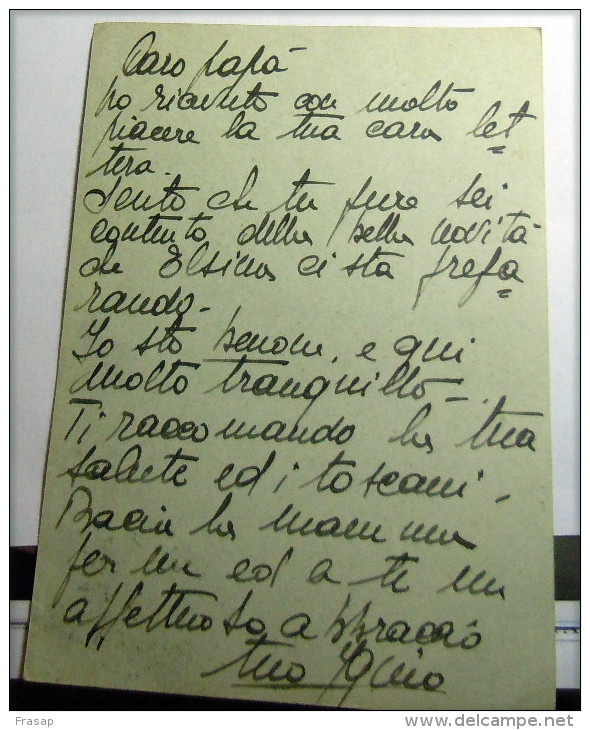 Caro papà
ho ricevuto con molto
piacere la tua cara let
tera.
Sento che tu pure sei
contento della bella novità
che Elsina ci sta prepa
rando.
Io sto benone, e qui
molto tranquillo.
Ti raccomando la tua
salute ed i toscani.
Bacia la mamma
per me ed a te un
affettuoso abbraccio
tuo
Frasap
delcampe.net